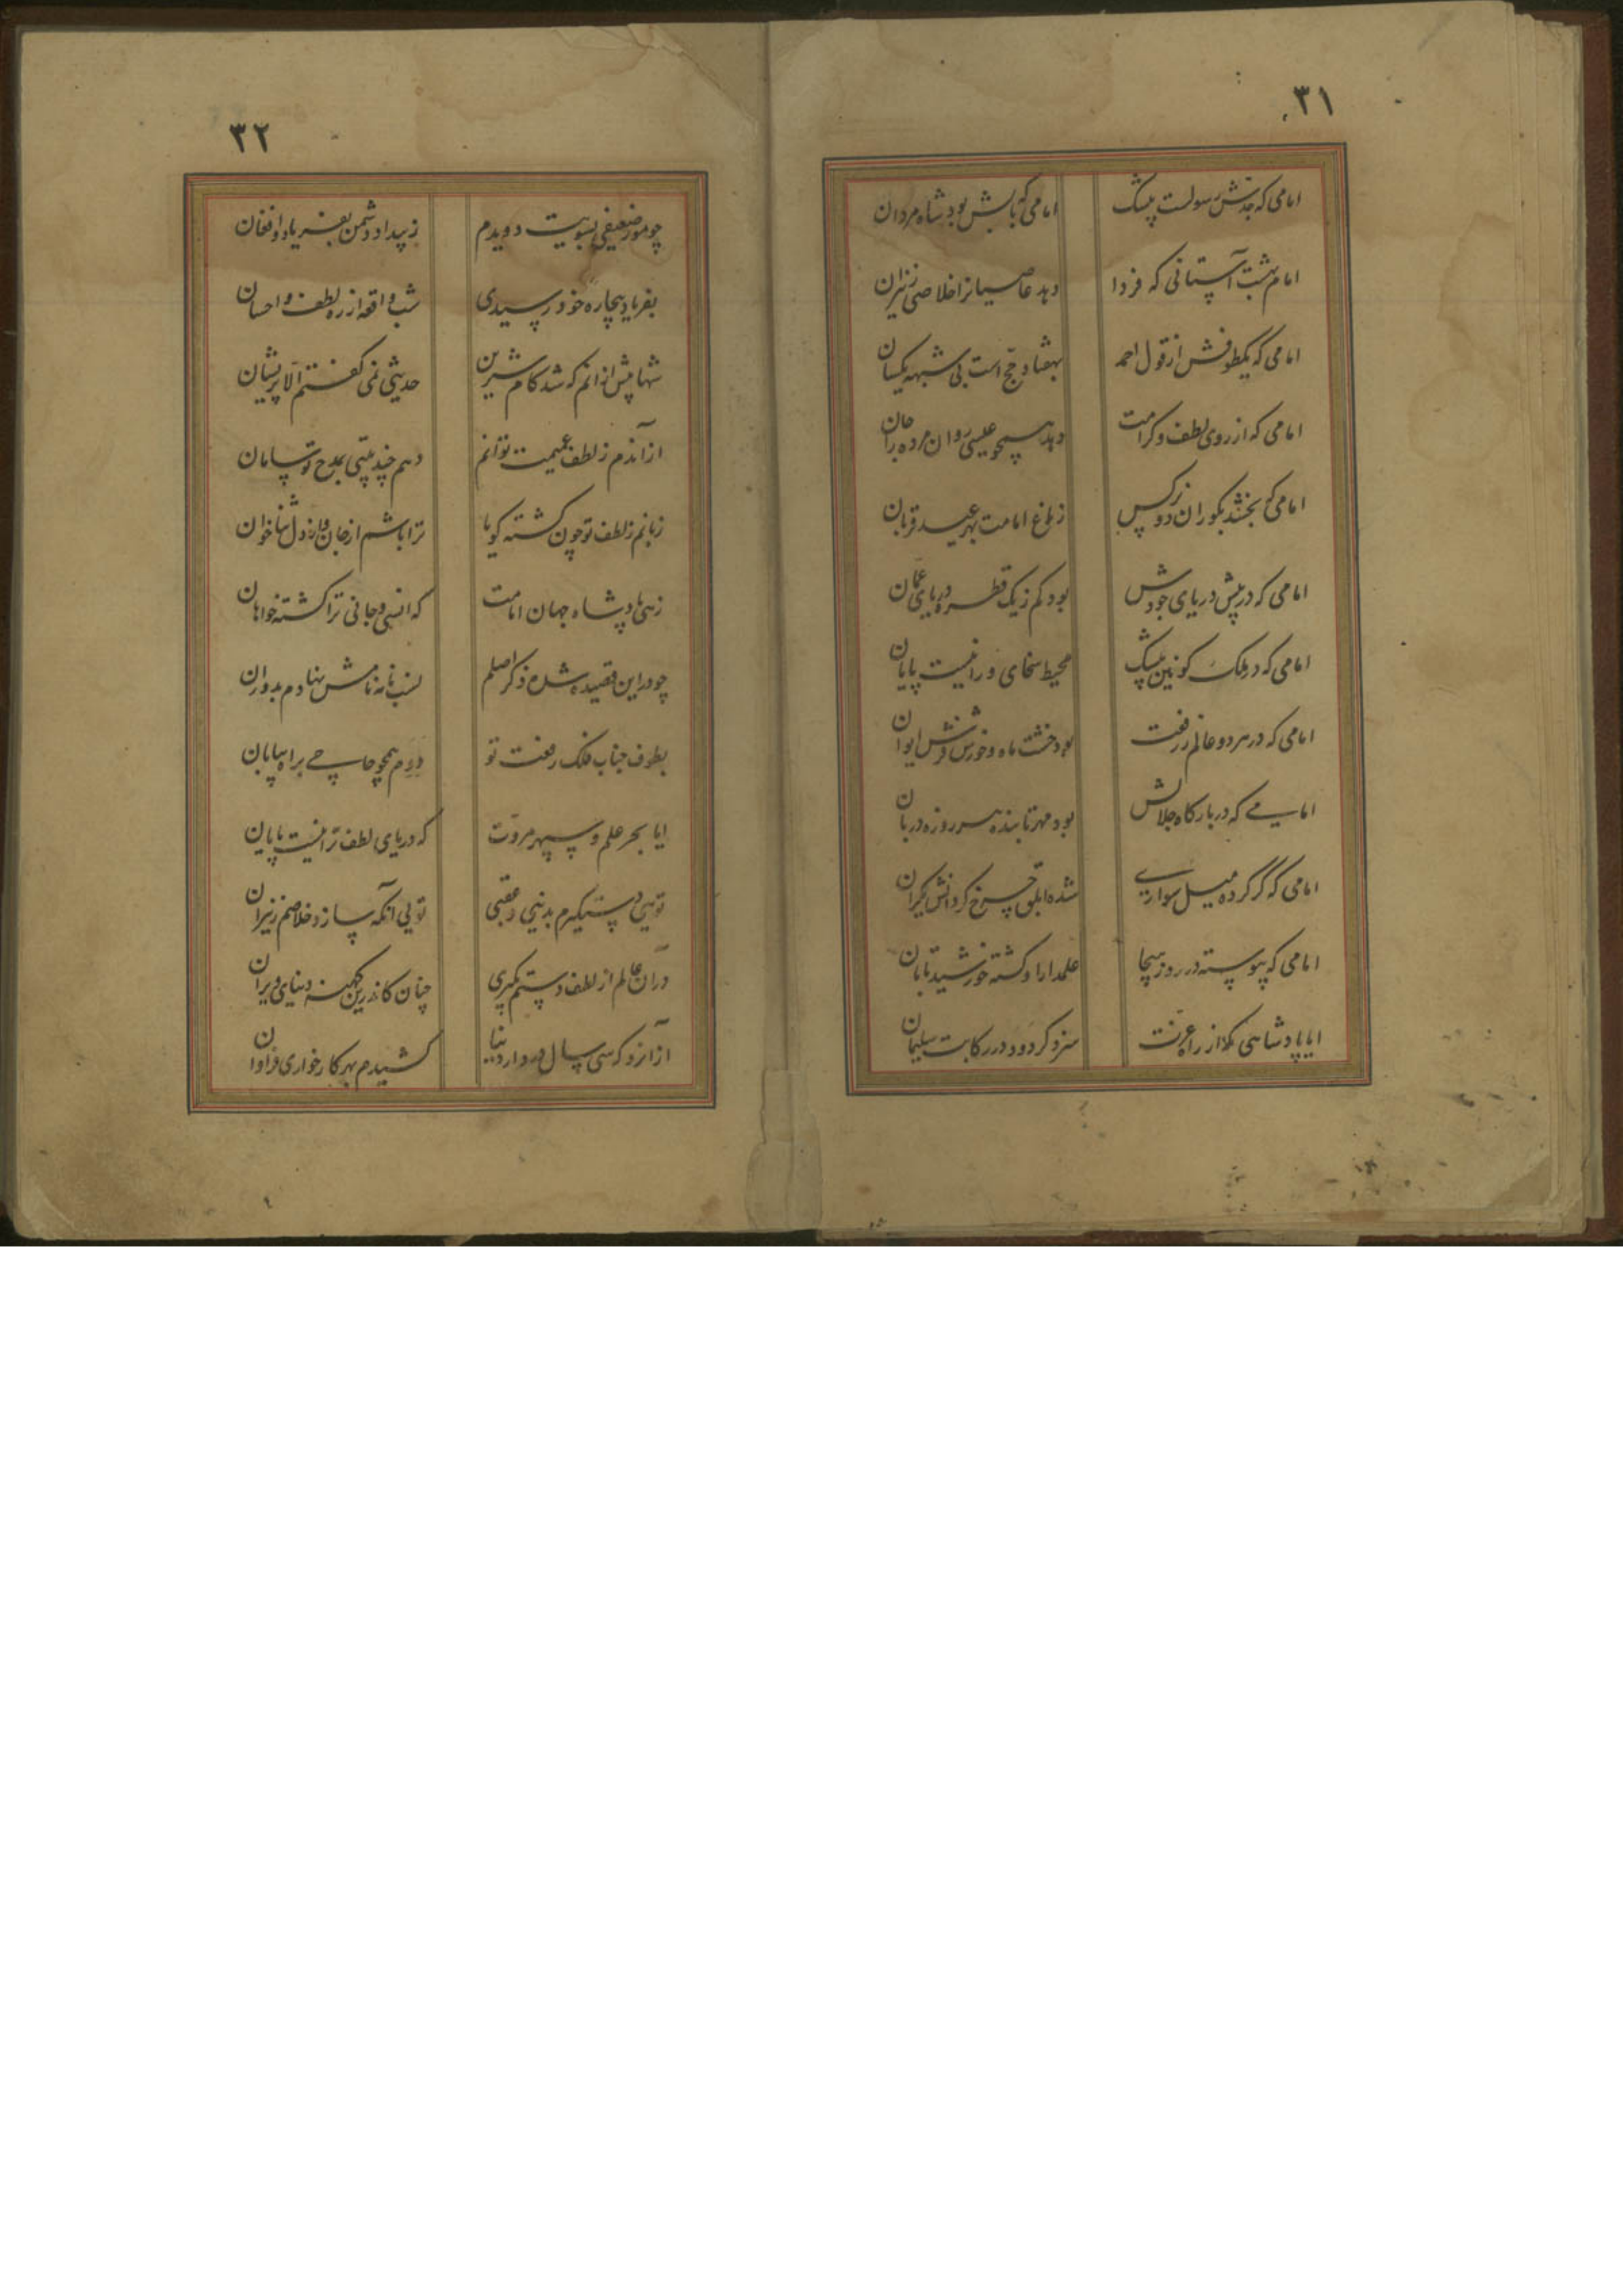 ۳۱
امامی که جدش رسولست بیشک امامی که بابش بود شاه مردان
امام بهشت آستانی که فردا دهد عاصیانرا خلاصی ز نیران
امامی که یکطوفش از قول احمد بهفتاد حج است بی شبهه یکسان
امامی که از روی لطف و کرامت دهد همچو عیسی روان مرده را جان
امامی که بخشد بکوران دو نرکس ز باغ امامت بهر عید قربان
امامی که در پیش دریای جودش بود کم ز یک قطره دریای عمان
امامی که در ملک کونین بیشک محیط سخای ورا نیست پایان
امامی که در هر دو عالم ز رفعت بود خشت ماه و خورش فرش ایوان
امامی که در بارکاه جلالش بود مهر تابنده هر روزه دربان
امامی که گر کرده میل سواری شده ابلق چرخ کردانش یکران
امامی که پیوسته در روز هیجا علمدار او کشته خورشید تابان
ایا پادشاهی که از راه عزت سزد کر دود در رکابت سلیمان
۳۲
چو مور ضعیفی بسویت دویدم ز بیداد دشمن بفریاد و افغان
بفریاد بیچاره خود رسیدی شب واقعه از ره لطف و احسان
شها پیش از انم که شد کام شیرین حدیثی نمی کفتم الا پریشان
از آندم ز لطف عمیمت توانم دهم چند بیتی بمدح تو سامان
زبانم ز لطف تو چون کشته کویا ترا باشم از جان و از دل ثناخوان
زهی پادشاه جهان امامت که انسی و جانی ترا کشته خواهان
چو در این قصیده شده ذکر اصلم نسب نامه نامش نهادم بدوران
بطوف جناب فلک رفعت تو دوم همچو حاجی براه بیابان
ایا بحر علم و سپهر مروت که دریای لطف ترا نیست پایان
تویی دستکیرم بدنیی و عقبی تویی آنکه سازد خلاصم ز نیران
در آن عالم از لطف دستم بگیری چنان کاندرین کهنه دنیای ویران
از آنرو که سی سال در دار دنیا کشیدم بهر کار خواری فراوان